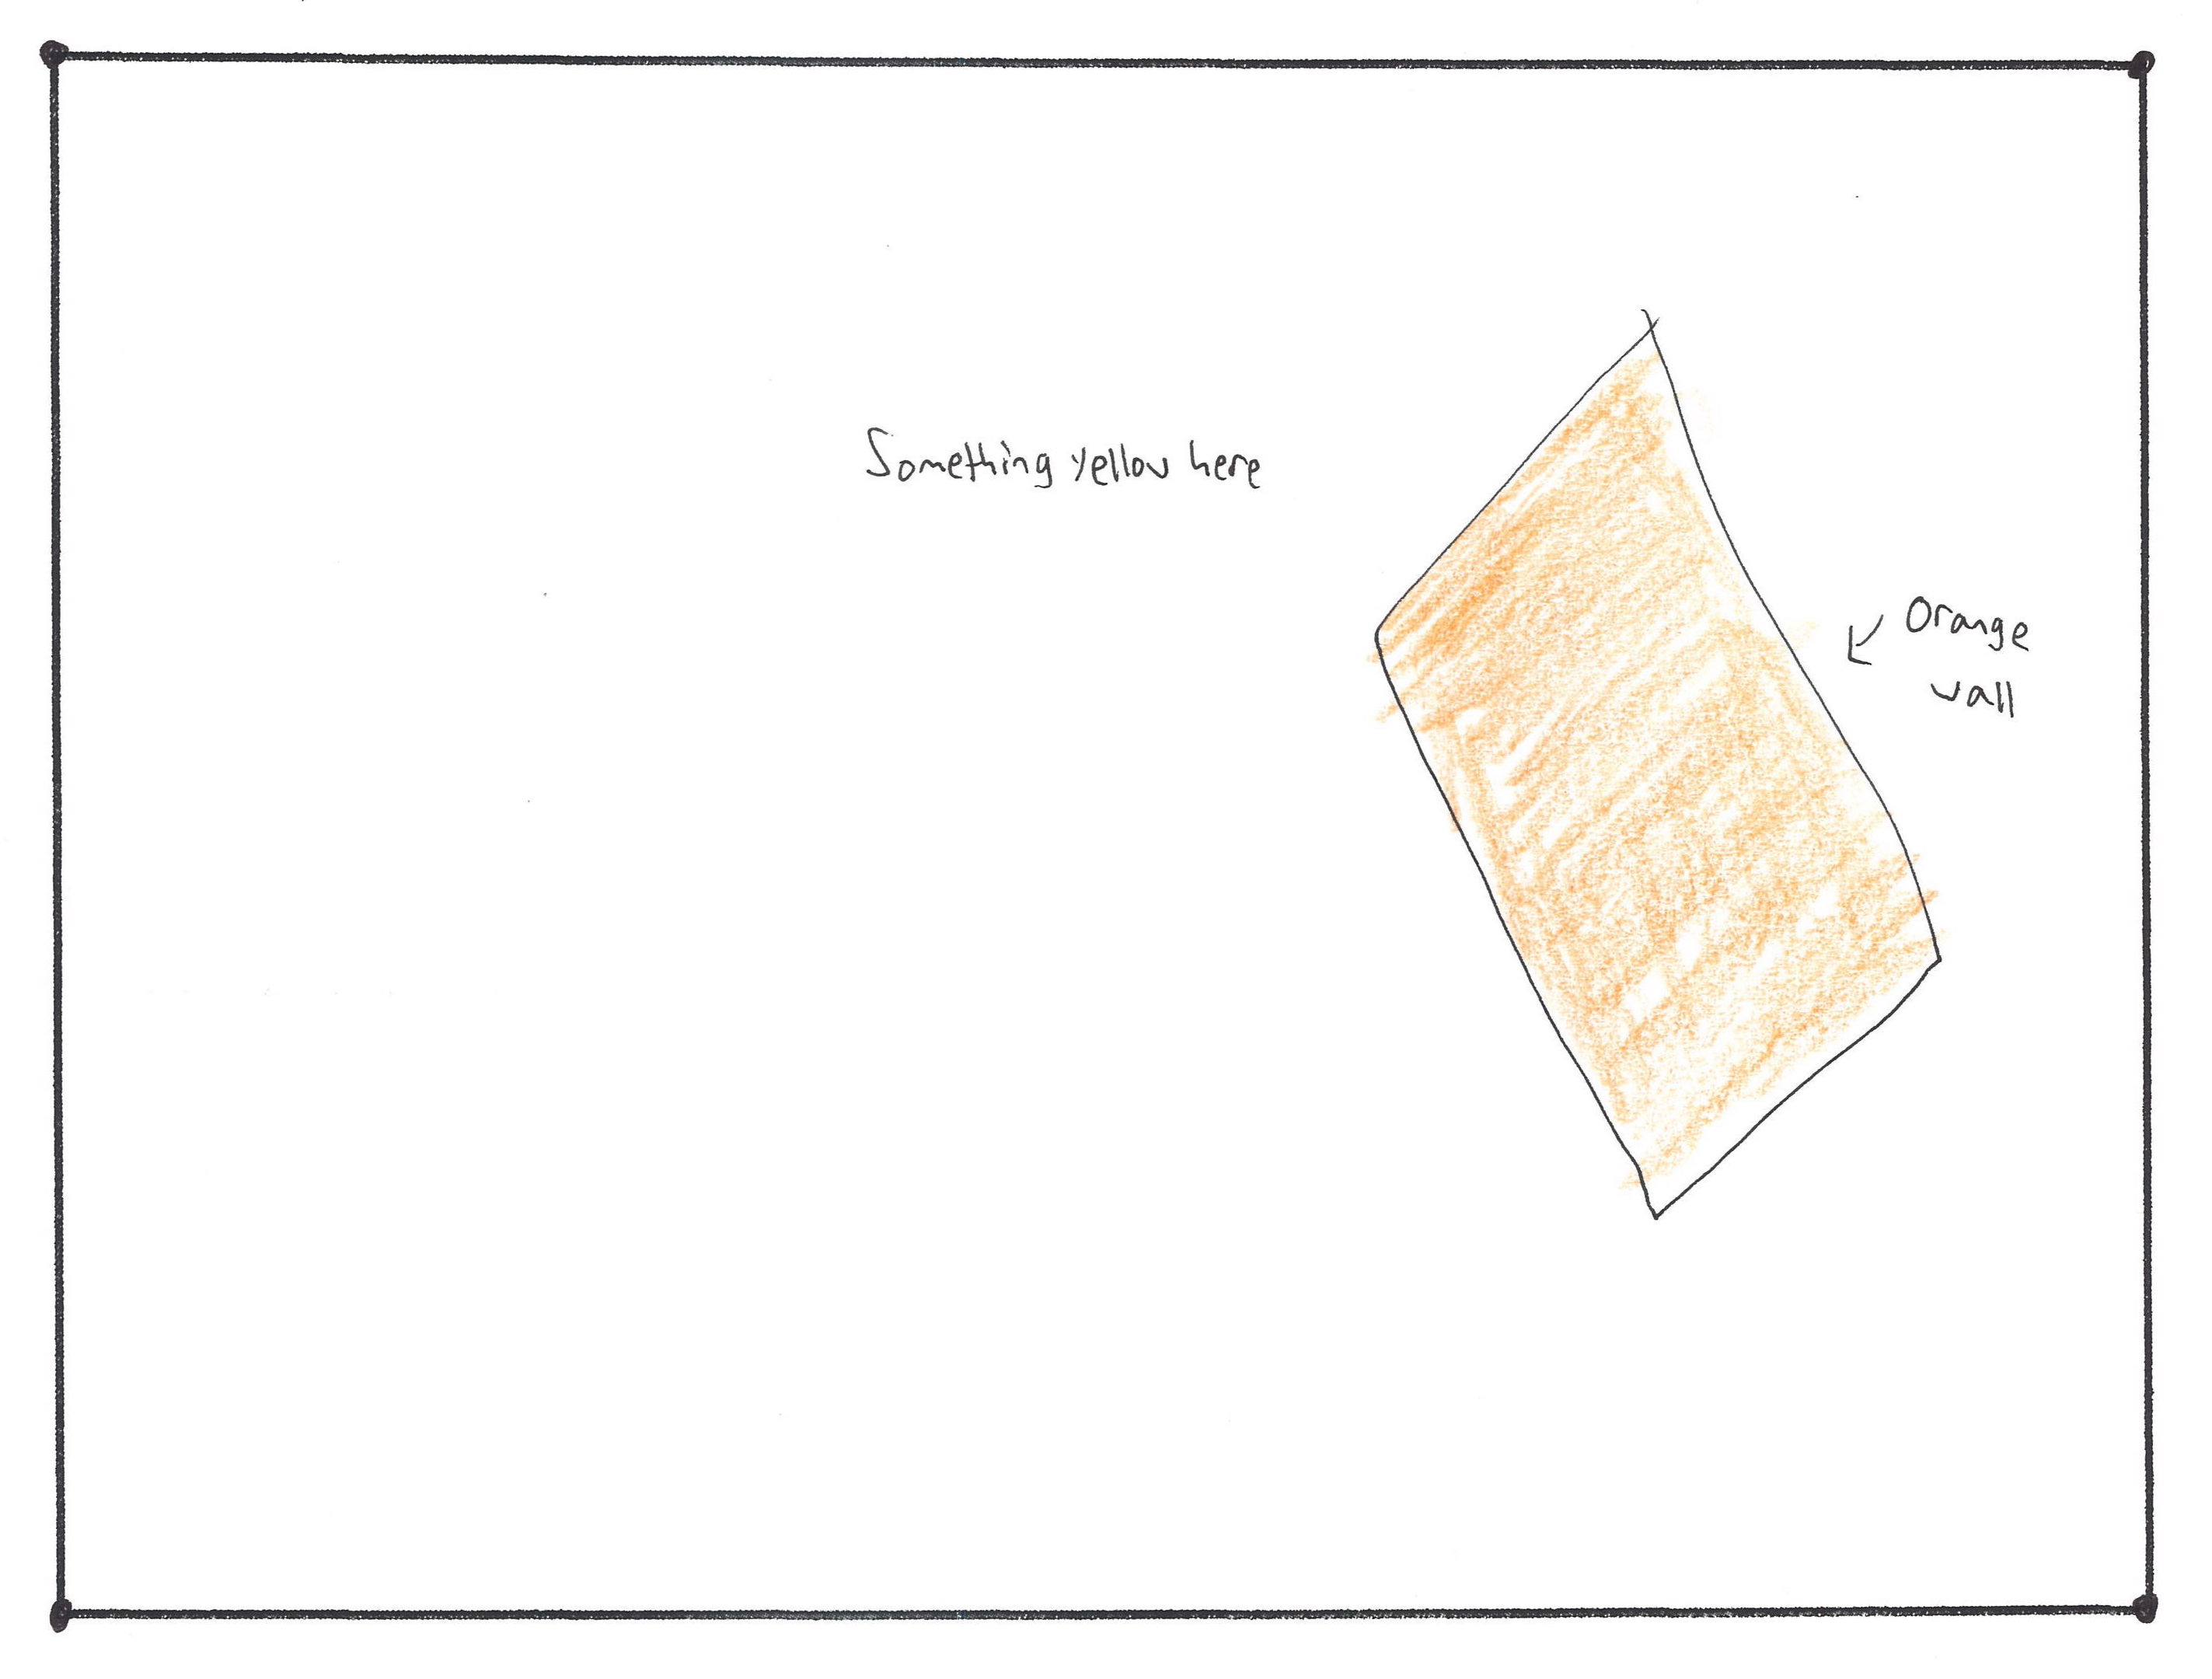 Something yellow here
Orange
wall